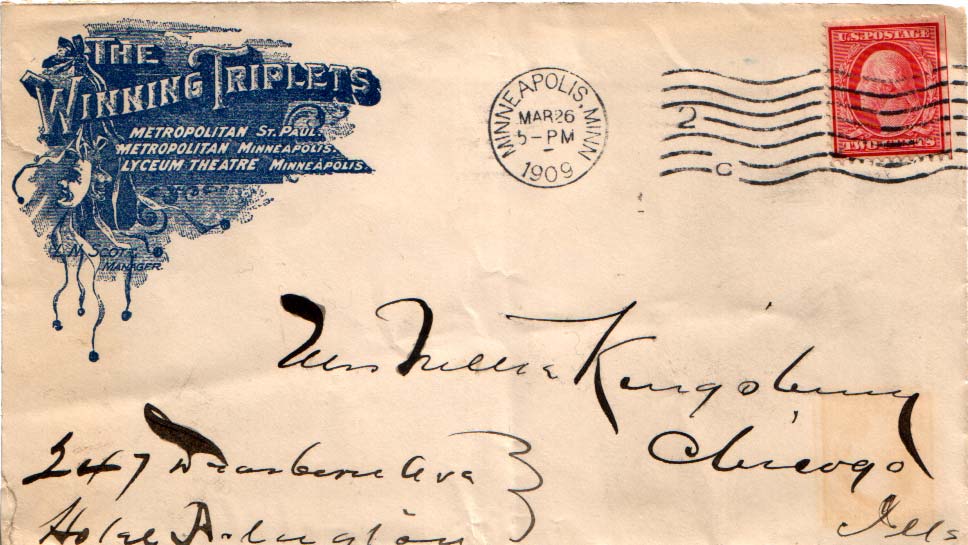 THE
WINNING TRIPLETS
METROPOLITAN ST. PAUL.
METROPOLITAN MINNEAPOLIS.
LYCEUM THEATRE MINNEAPOLIS.
L. N. SCOTT
MANAGER.
MINNEAPOLIS, MINN
MAR 26
5-PM
1909
2
C
U.S. POSTAGE
TWO CENTS
Nellie Kingsbury
Chicago
Ills
247 Dearborn Ave
Hotel